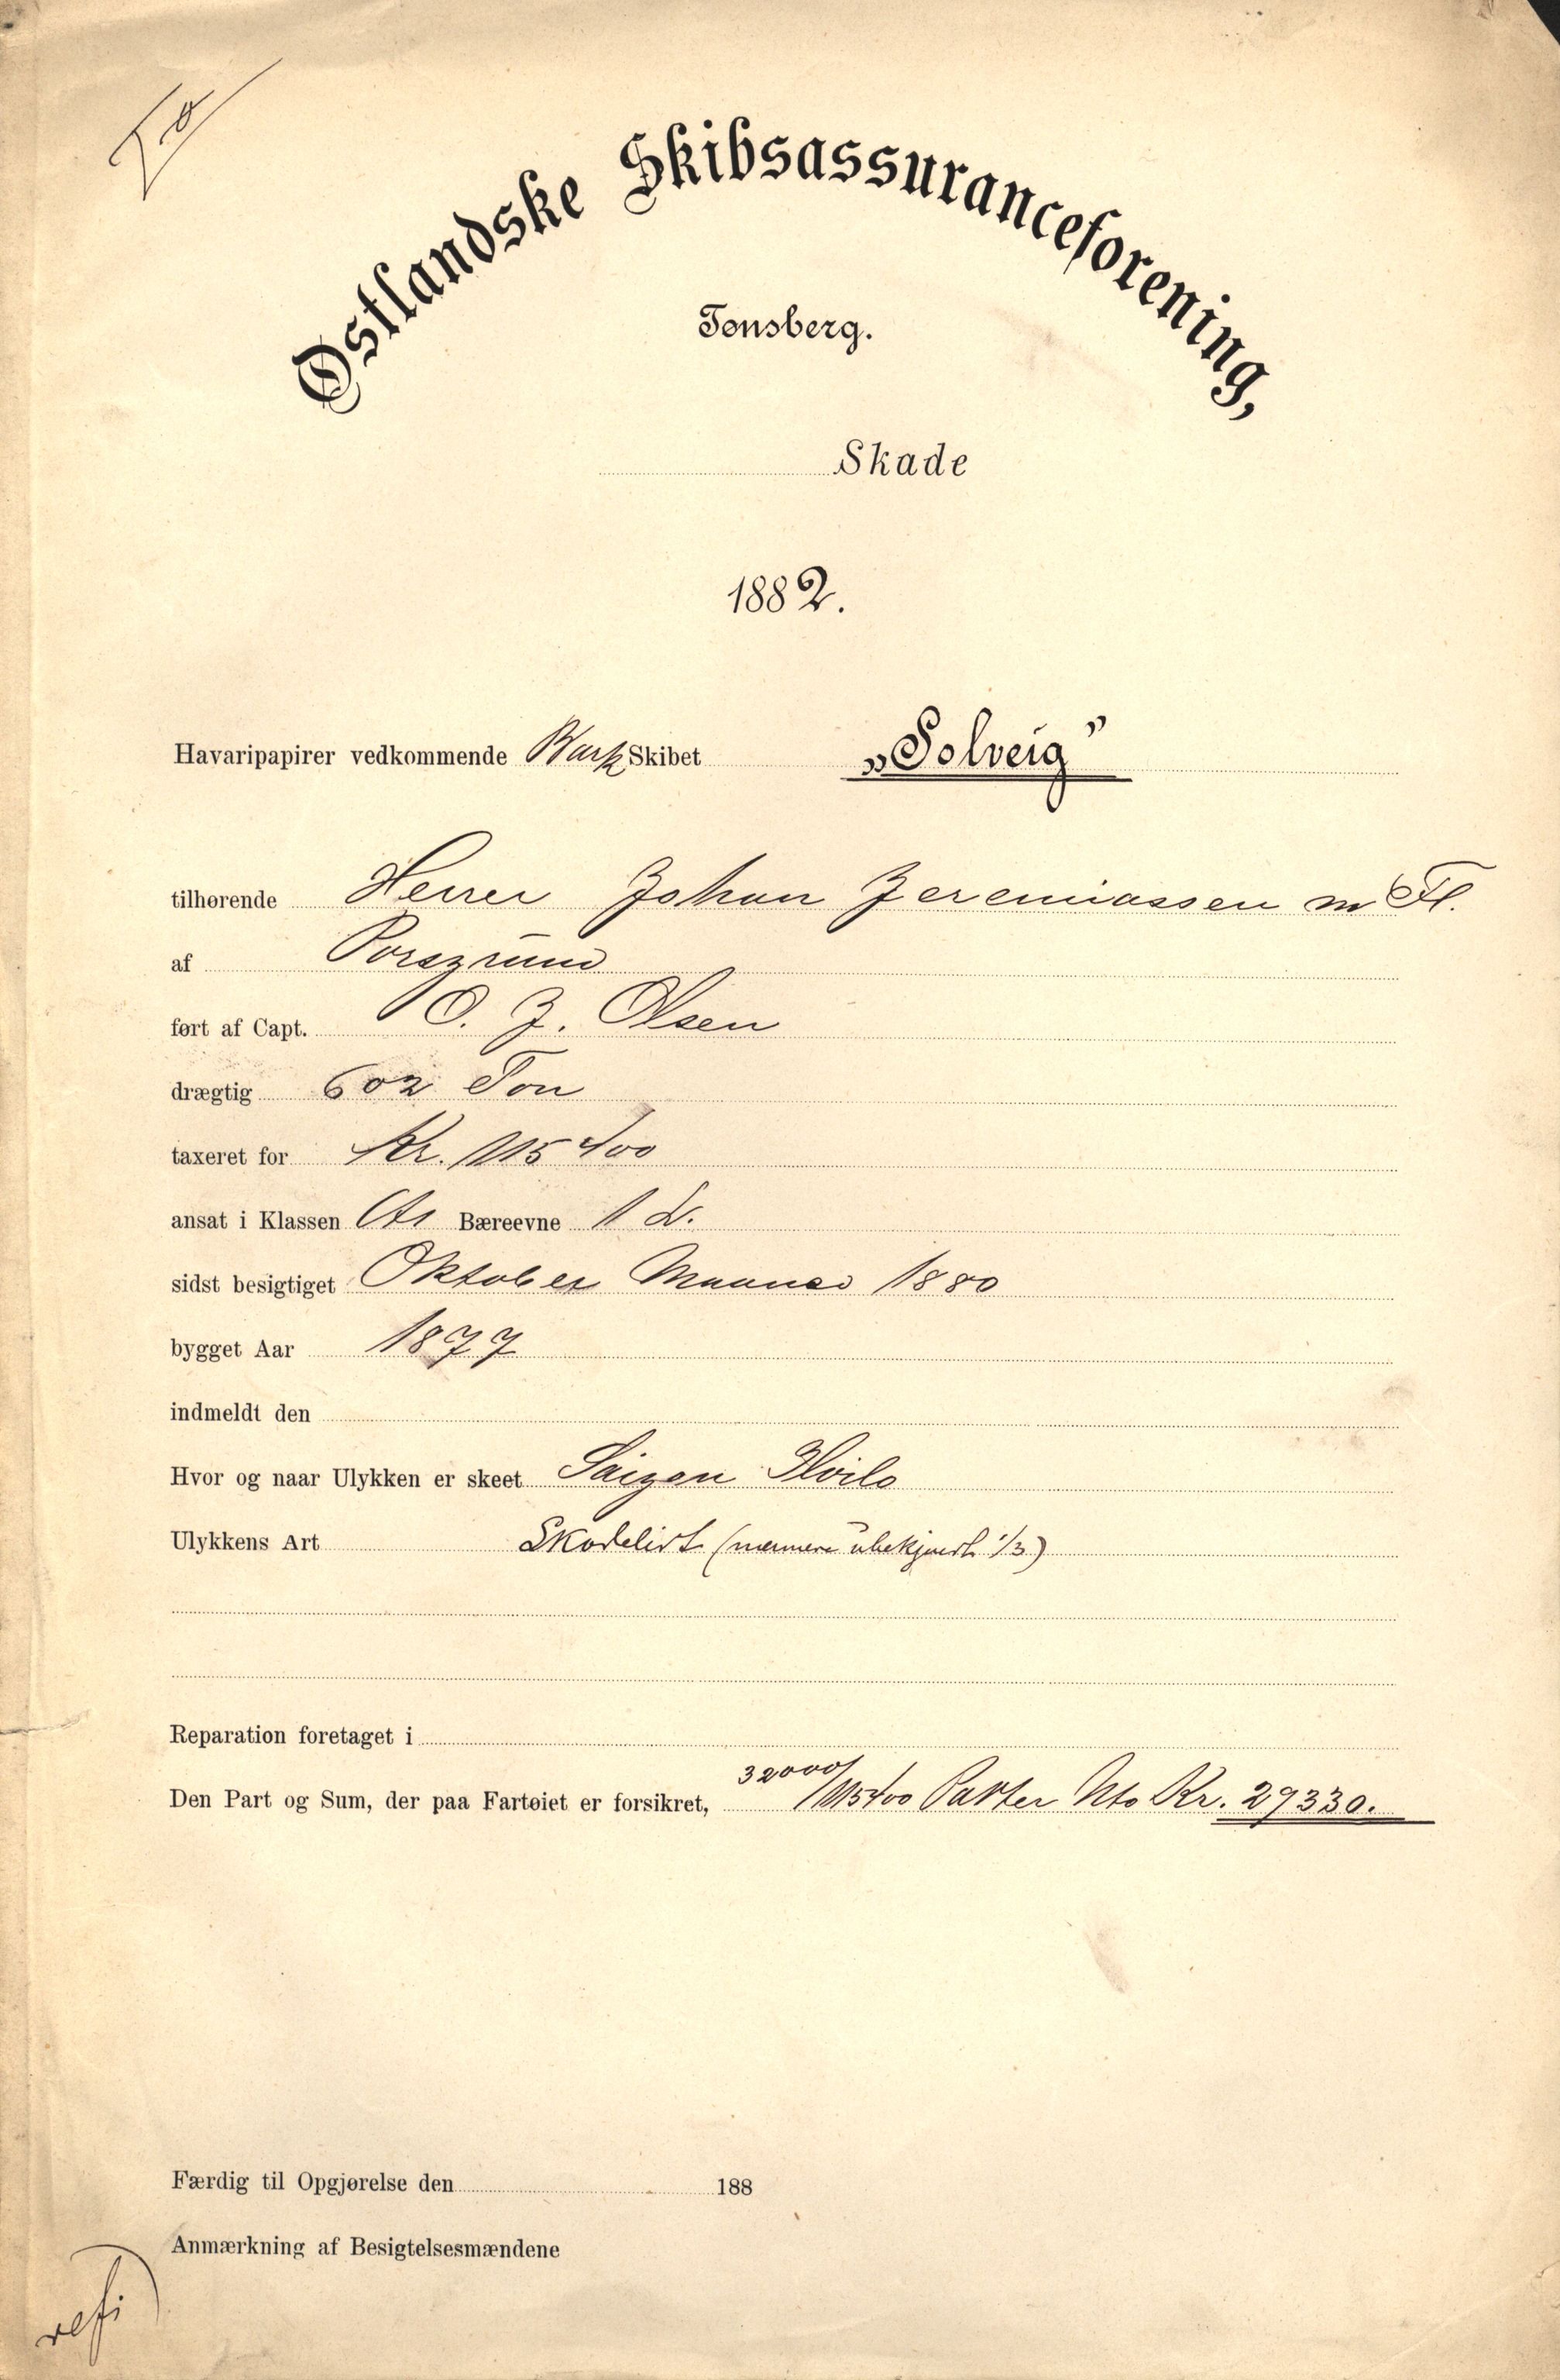 Østlandske Skibsassuranceforening,
Tønsberg.
Skade
1882.
Havaripapirer vedkommende Bark Skibet „Solveig”
tilhørende Herrer Johan Jeremiassen m Fl.
af Porsgrund
ført af Capt. O. J. Olsen
drægtig 602 Ton
taxeret for Kr. 115400
ansat i Klassen A1 Bæreevne 1 L.
sidst besigtiget Oktober Maaned 1880
bygget Aar 1877
indmeldt den
Hvor og naar Ulykken er skeet Saigon
Ulykkens Art (nærmere ubekjendt 1/3)
Reparation foretaget i
Den Part og Sum, der paa Fartøiet er forsikret, 32000/115400 Parter Nto Kr. 29330.
Færdig til Opgjørelse den 188
Anmærkning af Besigtelsesmændene